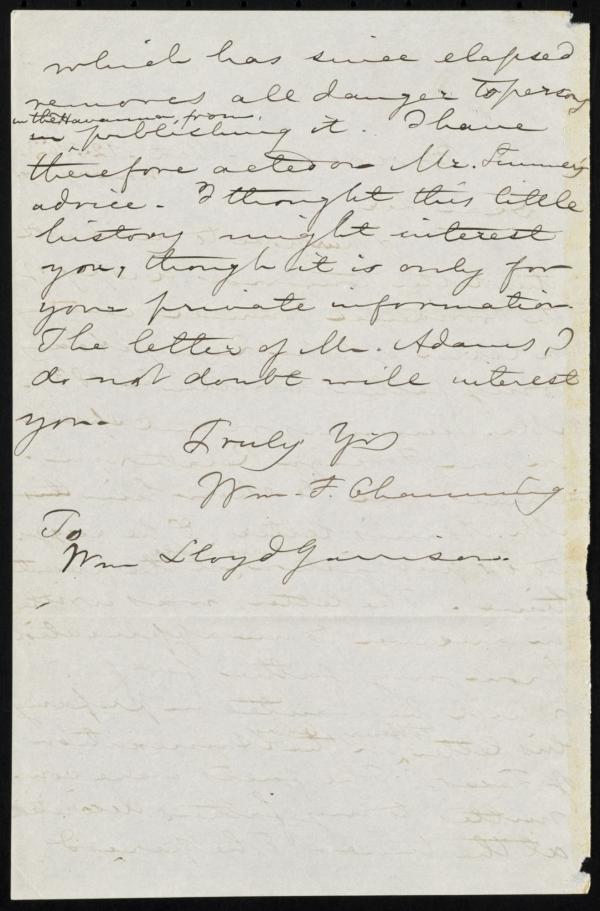 which has since elapsed
removes all danger to persons
in the Havanna, from,
in publishing it. I have
therefore acted on Mr.
advice. I thought this little
history might interest
you, though it is only for
your private information
The letter of Mr. Adams, I
do not doubt will interest
you.
Truly Yrs
Wm. F. Channing.
To
Wm Lloyd Garrison.